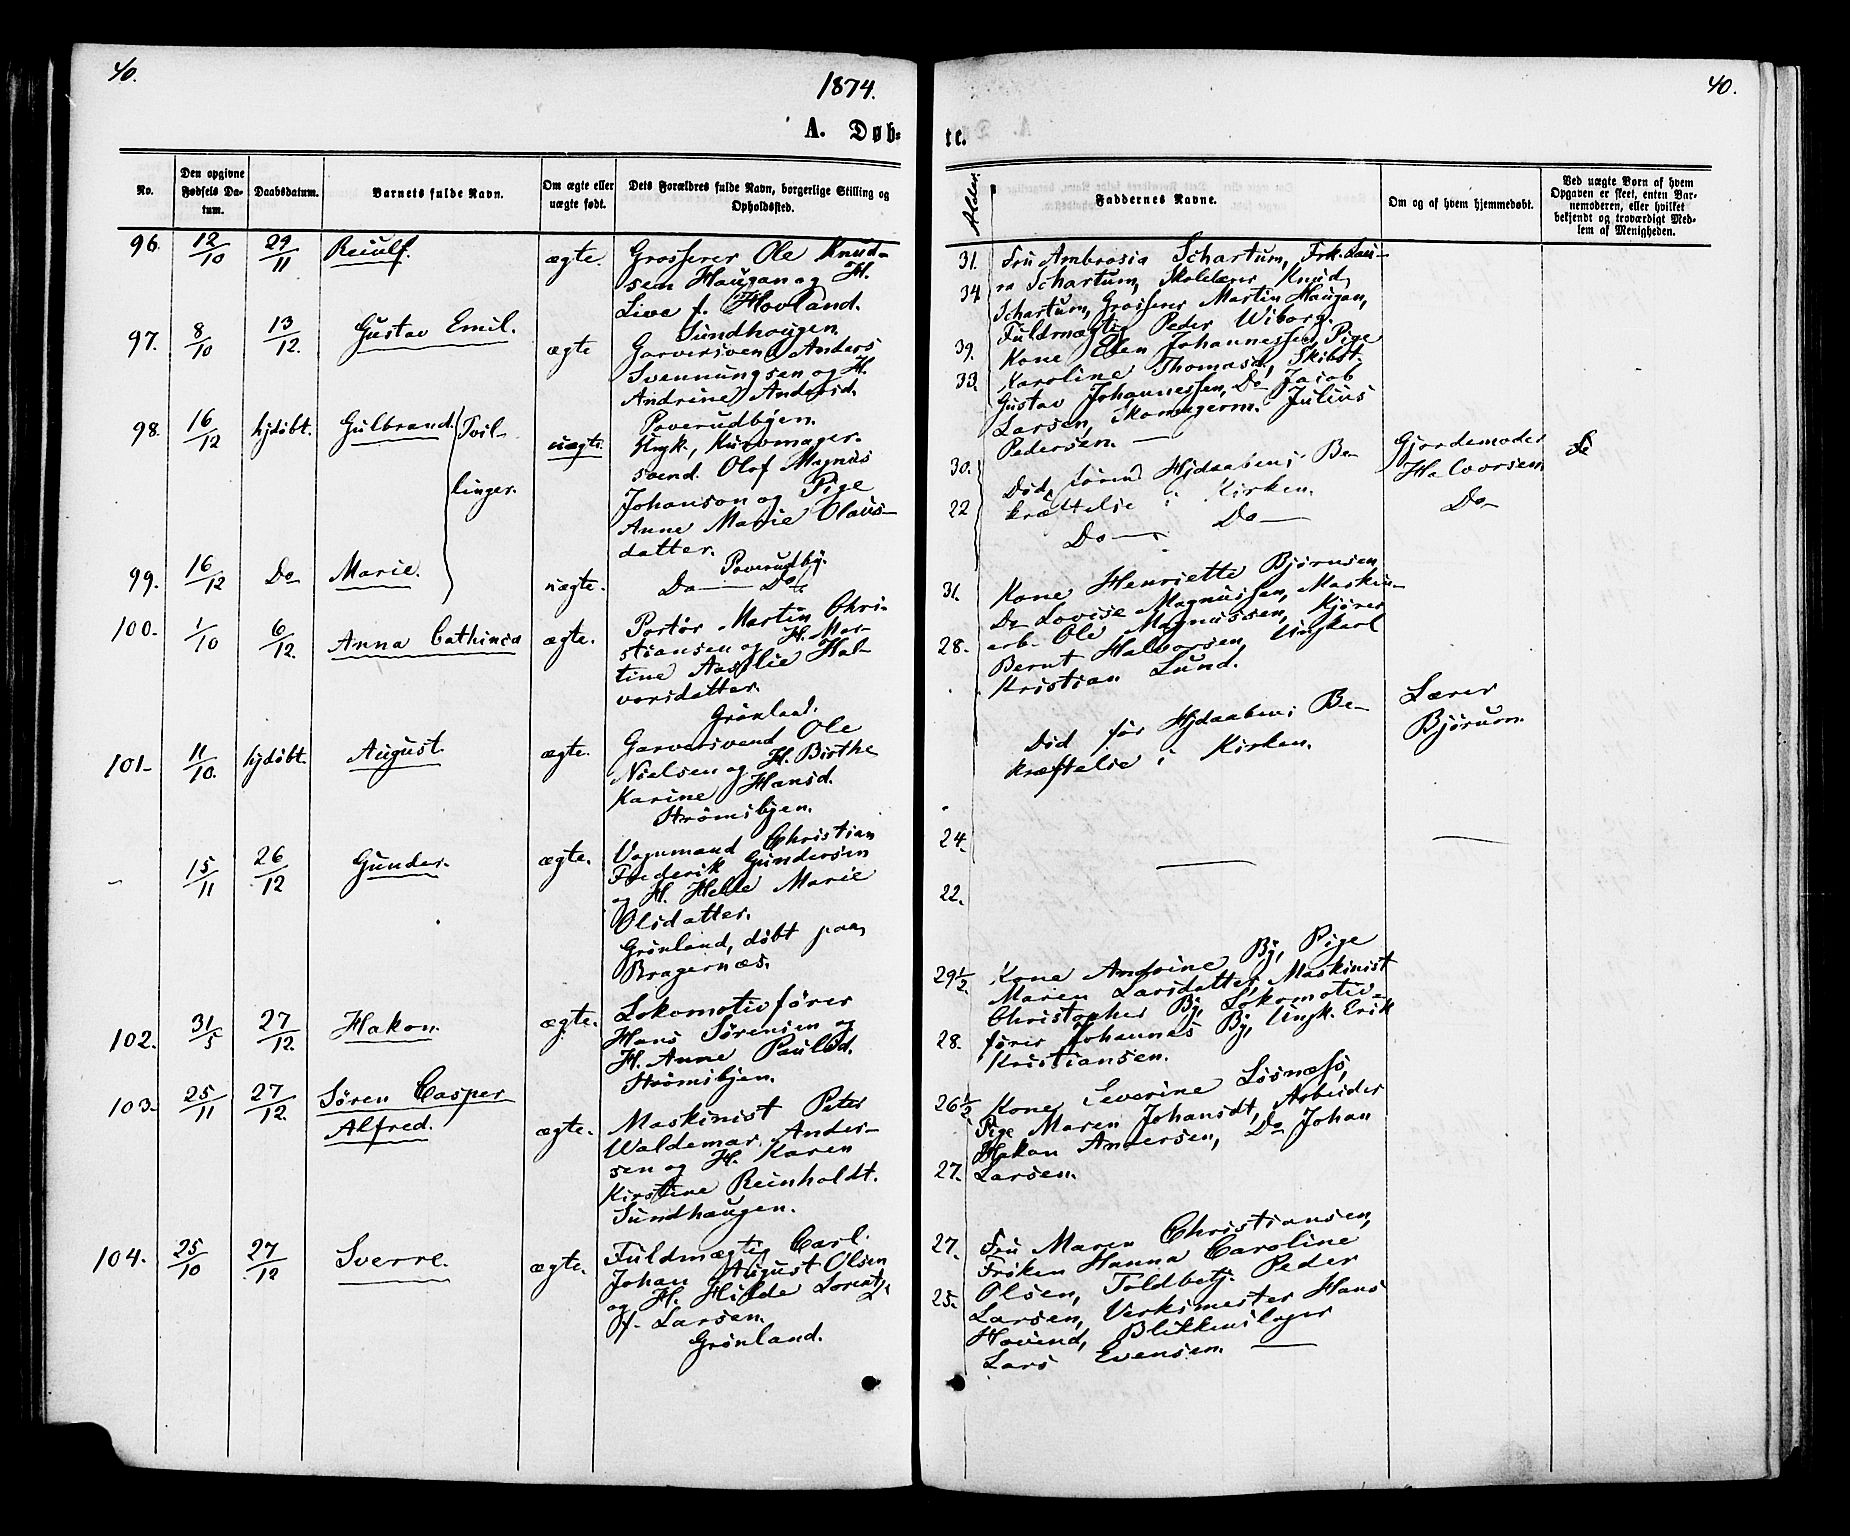 40.
1874.
A. Døb-
No.
Den opgivne Fødsels Datum.
Daabsdatum.
Barnets fulde Navn.
Om ægte eller uægte født.
Dets Forældres fulde Navn, borgerlige Stilling og Opholdssted.
96. 12/10 29/11 Reiulf. ægte. Grosserer Ole Knud-
sen Haugan og H.
Live f. Hovland.
Sundhaugen.
97. 8/10 13/12. Gustav Emil. ægte Garversvend Anders
Svennungsen og H.
Andrine Andersd.
Poverudbyen.
98. 16/12 hjdøbt. Gulbrand. Tvil- uægte. Ungk., Kurvmager-
svend. Olof Magnus
linger. Johanson og Pige
Anne Marie Olaus-
datter.
Poverudby.
99. 16/12 Do Marie. uægte. Do — Do
100. 1/10 6/12. Anna Cathinca ægte. Portør Martin Chri-
stiansen og H. Mar-
tine Aaslie Hal-
vorsdatter.
Grønland.
101- 11/10. hjdøbt. August. ægte. Garversvend Ole
Nielsen og H. Birthe
Karine Hansd.
Strømsbyen.
- 15/11 26/12 Gunder. ægte. Vognmand Christian
Frederik Gundersen
og H. Helle Marie
Olsdatter.
Grønland, døbt paa
Bragernæs.
102. 31/5 27/12. Hakon. ægte. Lokomotivfører
Hans Sørensen og
H. Anne Paulsd.
Strømsbyen.
103. 25/11 27/12. Søren Casper
Alfred. ægte. Maskinist Peter
Waldemar Ander-
sen og H. Karen
Kirstine Reinholdt.
Sundhaugen.
104. 25/10 27/12 Sverre. ægte. Fuldmægtig Carl
Johan August Olsen
og H. Hilde Lorentz.
f. Larsen.
Grønland.
40.
te.
Alder.
Faddernes Navne.
Om og af hvem hjemmedøbt.
Ved uægte Børn af hvem Opgaven er skeet, enten Barnemoderen, eller hvilket bekjendt og troværdigt Medlem af Menigheden.
31. Fru Ambrosia Schartum, Frk. Lau-
34 ra Schartum, Skolelærer Knud
Schartum, Grosserer Martin Haugan,
Fuldmægtig Peder Wiborg.
39. Kone Elen Johannessen, Pige
33. Karoline Thomasd, Skibst.
Gustav Johannessen, Do Jacob
Larsen, Skomagerm. Julius
Pedersen. —
30. Død, førend Hjdaabens Be- Gjordemoder
22 kræftelse i Kirken. Halvorsen
Do — Do — Do-
31. Kone Henriette Bjørnsen,
Do Lovise Magnussen, Maskin-
28. arb. Ole Magnussen, Kjører
Bernt Halvorsen, Ungkarl
Kristian Lund.
Død før Hjdaabens Be- Lærer
kræftelse i Kirken. Bjørum.
24. —
22. —
29½ Kone Andrine By, Pige
Maren Larsdatter, Maskinist
Christopher By, Lokomotiv-
28. fører Johannes By, Ungk. Erik
Kristiansen.
26½ Kone Severine Løsnæss,
Pige Maren Johansdt, Arbeider
Hakon Andersen, Do Johan
27. Larsen.
27. Fru Maren Christiansen,
Frøken Hanna Caroline
25. Olsen, Toldbetj. Peder
Larsen, Verksmester Hans
Hovind, Blikkenslager
Lars Evensen. —